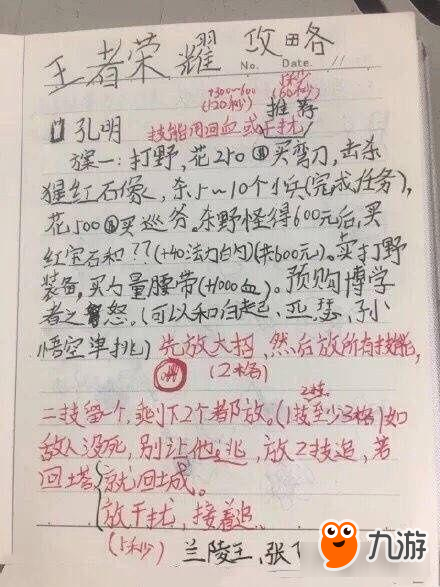 王者荣耀 攻略
No. Date. 11
+300~600
(120秒)
(60秒)
推荐
孔明 技能用回血或干扰
方案一:打野,花250买弯刀,击杀
猩红石像,杀5~10个小兵(完成任务),
花500买巡务。杀野怪得600元后,买
红宝石和??(+40法力白内)(来600元)。卖打野
装备,买力量腰带(+1000血)。预购博学
者之怒。(可以和白起、亚瑟、孙
悟空单挑)先放大招,然后放所有技能,
(2格)
二技留一个,剩下2个都放。(1技至少3格)如
敌人没死,别让他逃,放2技追,若
回塔就回城。
放干扰,接着追
(5秒)
兰陵王、张
九游